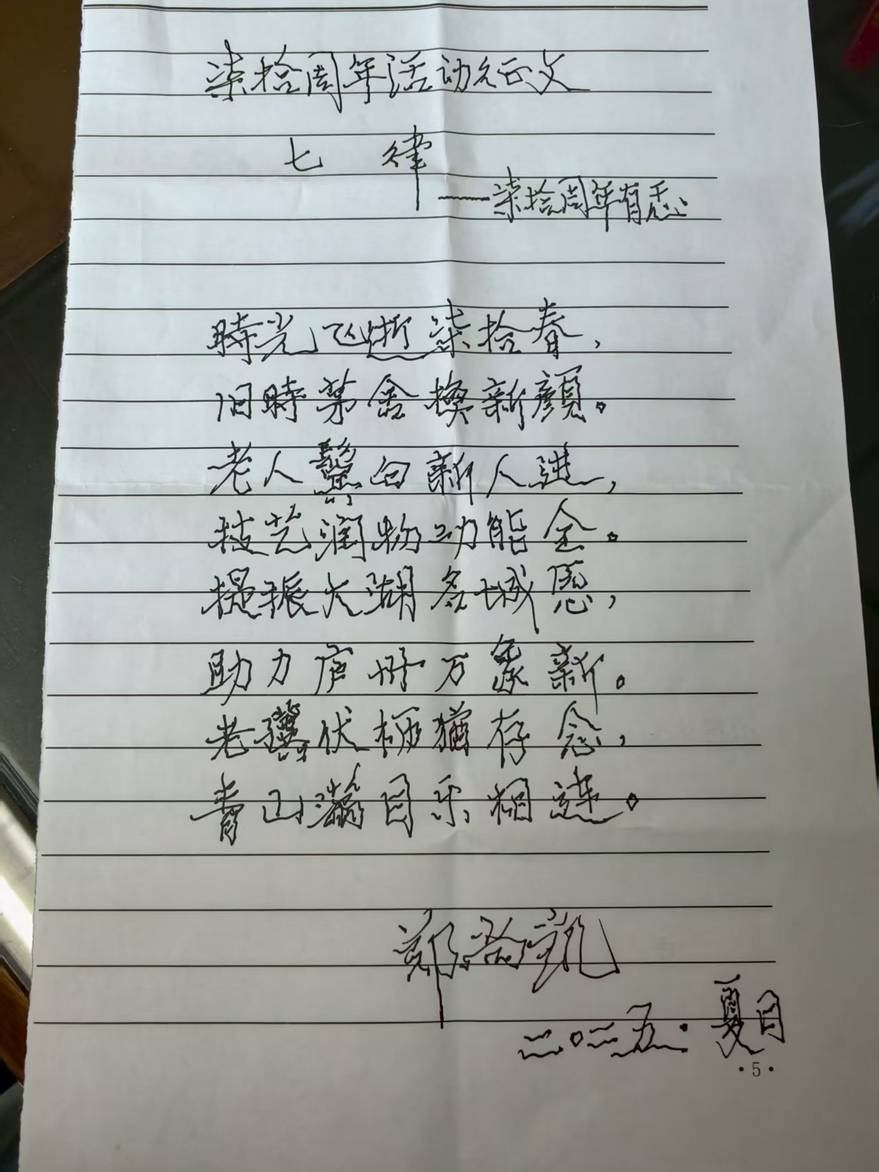 柒拾周年活动征文
七 律
——柒拾周年有感
時光飞逝柒拾春，
旧時茅舍換新顔。
老人鬓白新人进，
技艺润物功能全。
提振大湖名城愿，
助力庐州万象新。
老骥伏枥猶存念，
青山满目乐相连。
郑洛凯
二〇二五·夏月
·5·